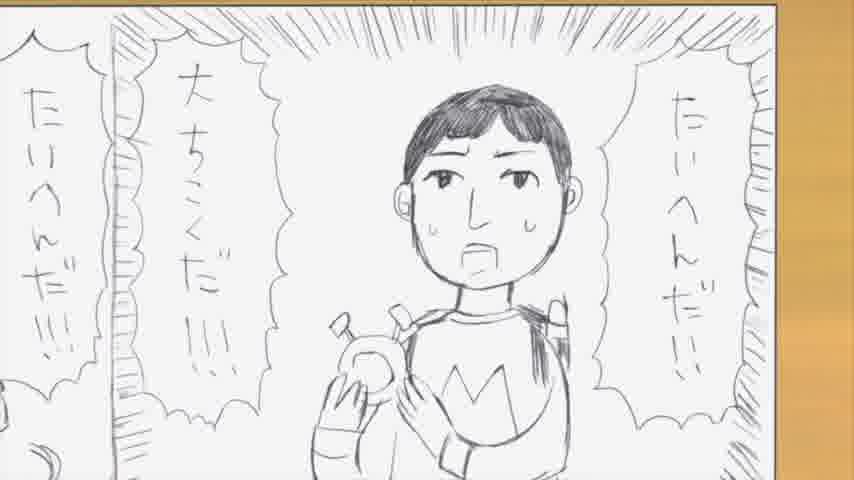 たいへんだ!!
大ちこくだ!!!
たいへんだ!!!